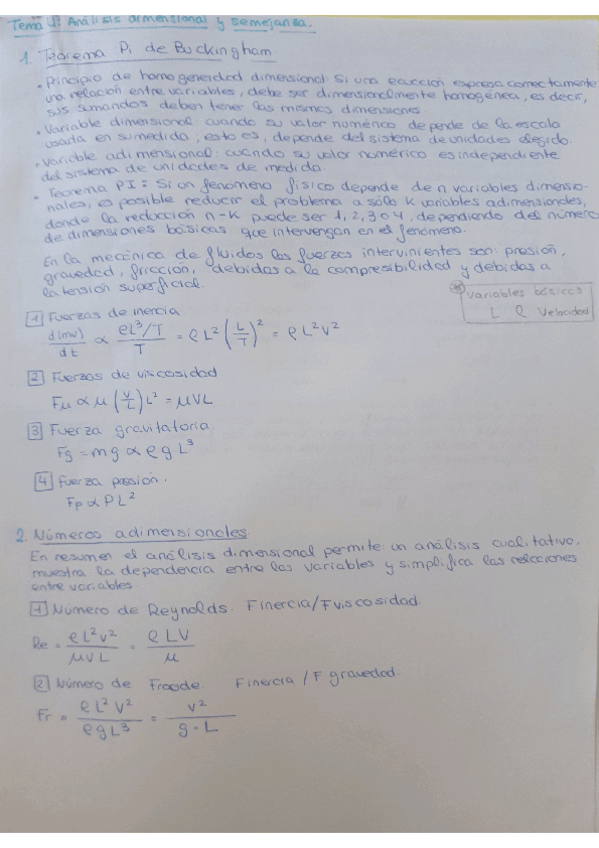 Tema 4: Análisis dimensional y semejanza.
1. Teorema Pi de Buckingham
• Principio de homogeneidad dimensional: Si una ecuación expresa correctamente
una relación entre variables, debe ser dimensionalmente homogénea, es decir,
sus sumandos deben tener las mismas dimensiones
• Variable dimensional cuando su valor numérico depende de la escala
usada en su medida, esto es, depende del sistema de unidades elegido.
• Variable adimensional: cuando su valor numérico es independiente
del sistema de unidades de medida.
• Teorema PI: Si un fenómeno físico depende de n variables dimensio-
nales, es posible reducir el problema a sólo k variables adimensionales,
donde la reducción n-k puede ser 1, 2, 3 o 4, dependiendo del número
de dimensiones básicas que intervengan en el fenómeno.
En la mecánica de fluidos las fuerzas intervinientes son: presión,
gravedad, fricción, debidas a la compresibilidad y debidas a
la tensión superficial.
* Variables básicas
L ρ Velocidad
1 Fuerzas de inercia
d(mv)/dt ∝ (ρL³/T)/T = ρL²(L/T)² = ρL²V²
2 Fuerzas de viscosidad
Fμ ∝ μ(V/L)L² = μVL
3 Fuerza gravitatoria
Fg = mg ∝ ρgL³
4 Fuerza presión.
Fp ∝ PL²
2. Números adimensionales.
En resumen el análisis dimensional permite: un análisis cualitativo,
muestra la dependencia entre las variables y simplifica las relaciones
entre variables
1 Número de Reynolds. Finercia/Fviscosidad.
Re = ρL²V²/μVL = ρLV/μ
2 Número de Froode. Finercia / F gravedad.
Fr = ρL²V²/ρgL³ = V²/g·L